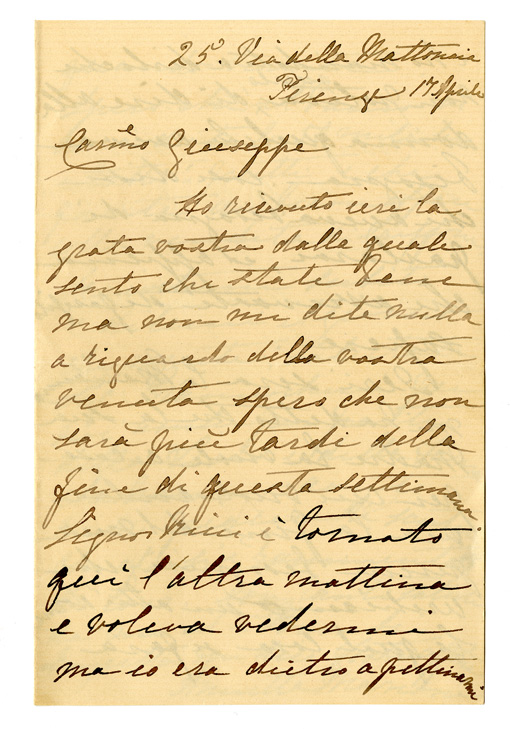 25. Via della Mattonaia
Firenze 17 Aprile
Carmo Giuseppe
Ho ricevuto ieri la
grata vostra dalla quale
sento che state bene
ma non mi dite nulla
a riguardo della vostra
venuta spero che non
sarà più tardi della
fine di questa settimana
Signor è tornato
qui l'altra mattina
e voleva vedermi
ma io era dietro a pettinarmi